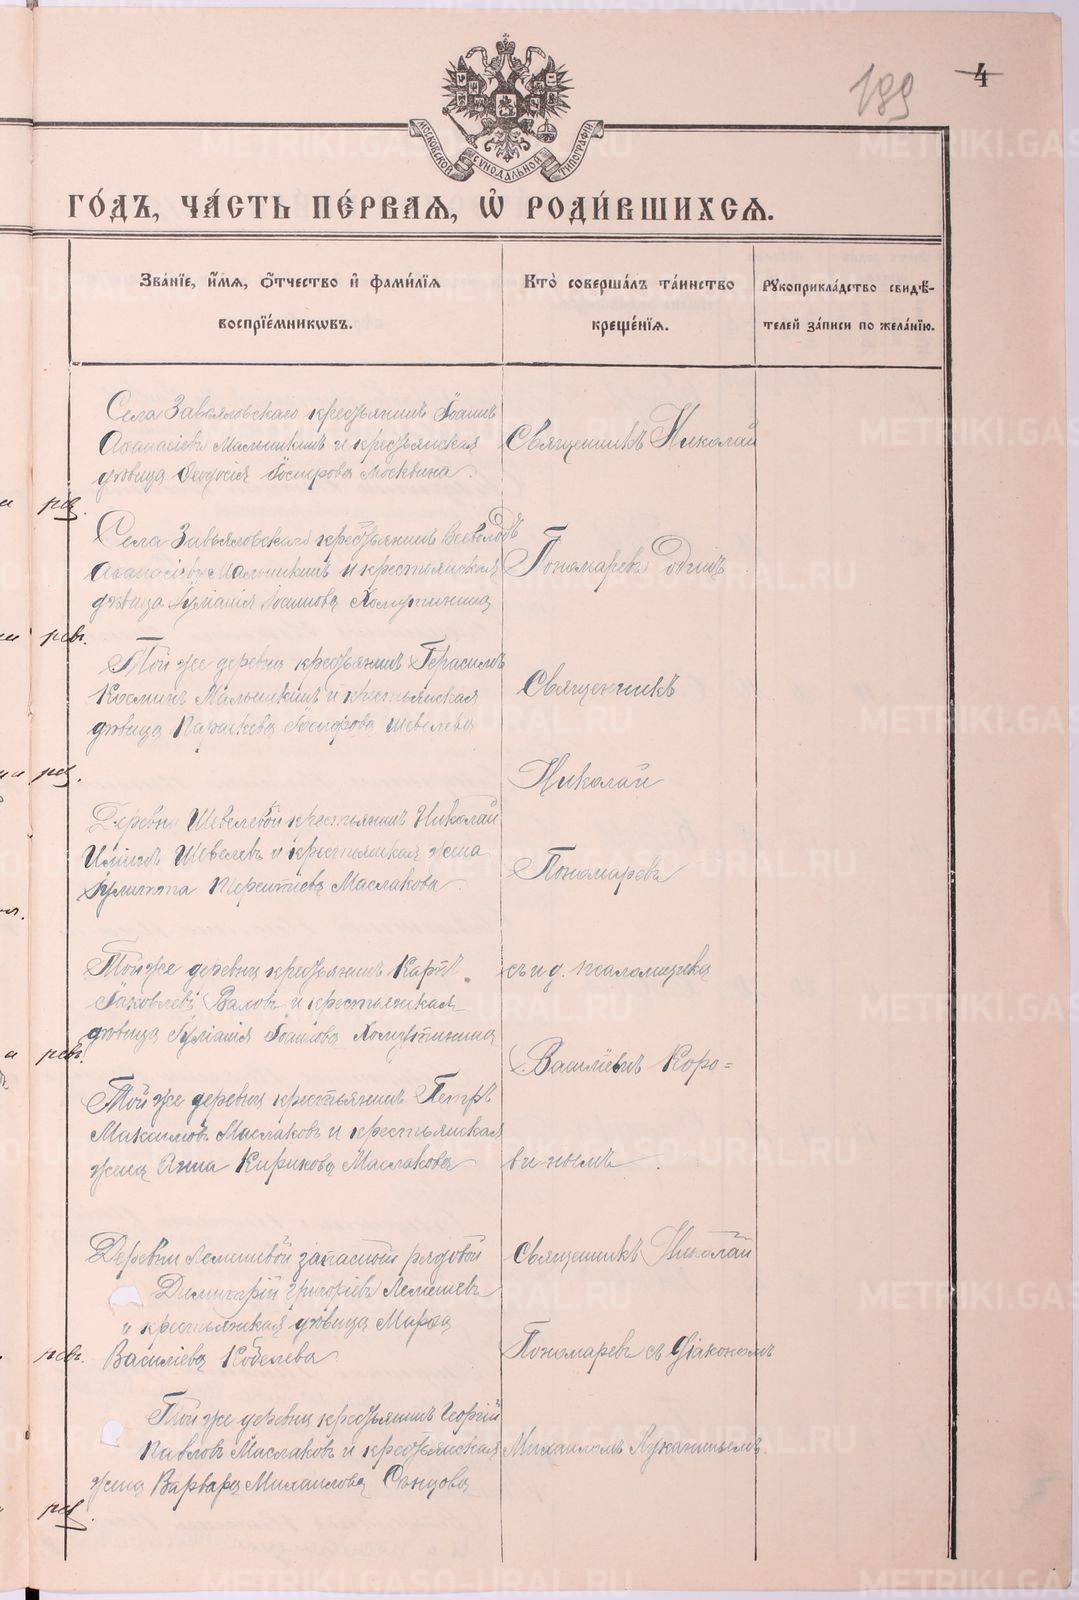 189
4
МОСКОВСКОЙ СѴНОДАЛЬНОЙ ТИПОГРАФІИ.
ГО́ДЪ, ЧА́СТЬ ПЕ́РВАЯ, Ѡ҆ РОДИ́ВШИХСЯ.
Зва́нїе, и҆́мя, ѻ҆́тчество и҆ фами́лїя
воспрїе́мникѡвъ.
Кто̀ соверша́лъ та́инство
креще́нїя.
Рꙋкоприкла́дство свидѣ́-
телей за́писи по жела́нїю.
Села Завьяловскаго крестьянинъ Іоаннъ
Аѳанасіевъ Мальцикинъ и крестьянская
дѣвица Ѳеодосія Іосифова Москвина
Священникъ Николай
Села Завьяловскаго крестьянинъ Всеволодъ
Аѳанасіевъ и крестьянская
дѣвица Іуліанія Іоаннова
Пономаревъ одинъ
Той же деревни крестьянинъ Герасимъ
Косминъ и крестьянская
дѣвица Параскева Іосифова Шевелева
Священникъ
Николай
Деревни Шевелевой крестьянинъ Николай
Шевелевъ и крестьянская жена
Іулитта Терентіева Маслакова
Пономаревъ
Той же деревни крестьянинъ Карпъ
Іаковлевъ Валовъ и крестьянская
дѣвица Іуліанія Іоаннова
съ и. д. псаломщика
Василіемъ Коро=
Той же деревни крестьянинъ Петръ
Максимовъ Маслаковъ и крестьянская
жена Анна Кирикова Маслакова
винымъ
Деревни Лемешевой запасной рядовой
Димитрій Григоріевъ Лемешевъ
и крестьянская дѣвица Марѳа
Василіева Кобелева
Священникъ Николай
Пономаревъ съ діакономъ
Той же деревни крестьянинъ Георгій
Павловъ Маслаковъ и крестьянская
жена Варвара Михаилова
Михаиломъ